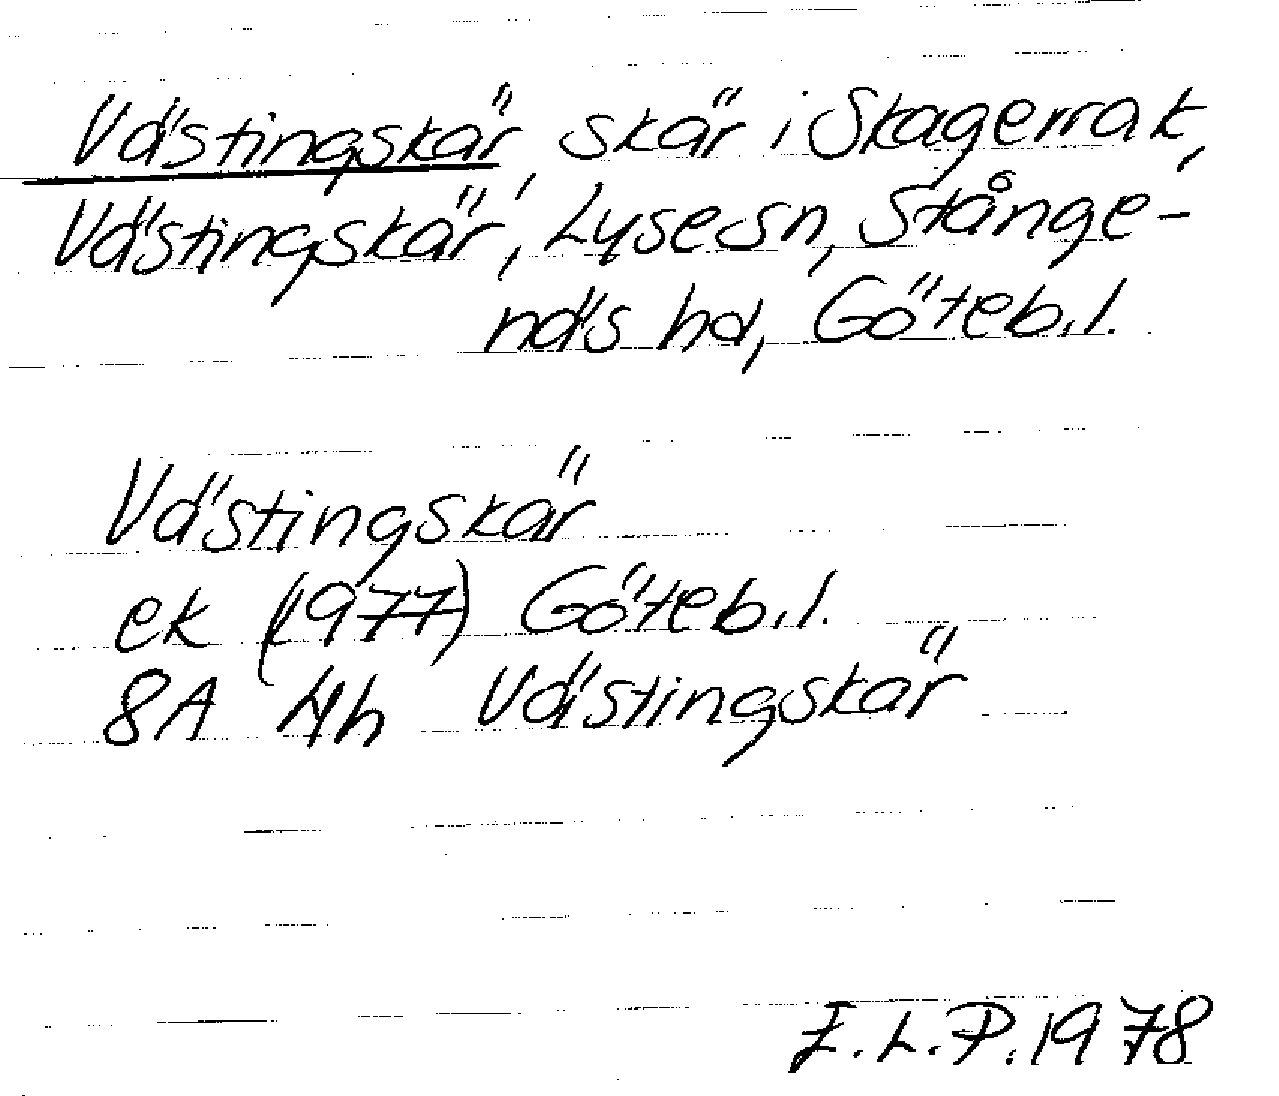 Västingskär, skär i Skagerrak,
Västingskär, Lyse sn, Stånge-
näs hd, Göteb.l.
Västingskär
ek (1977) Göteb.l.
8A 4h Västingskär
E.L.P. 1978